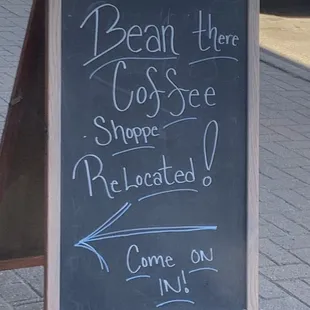 Bean there
Coffee
Shoppe
Relocated!
Come on
in!